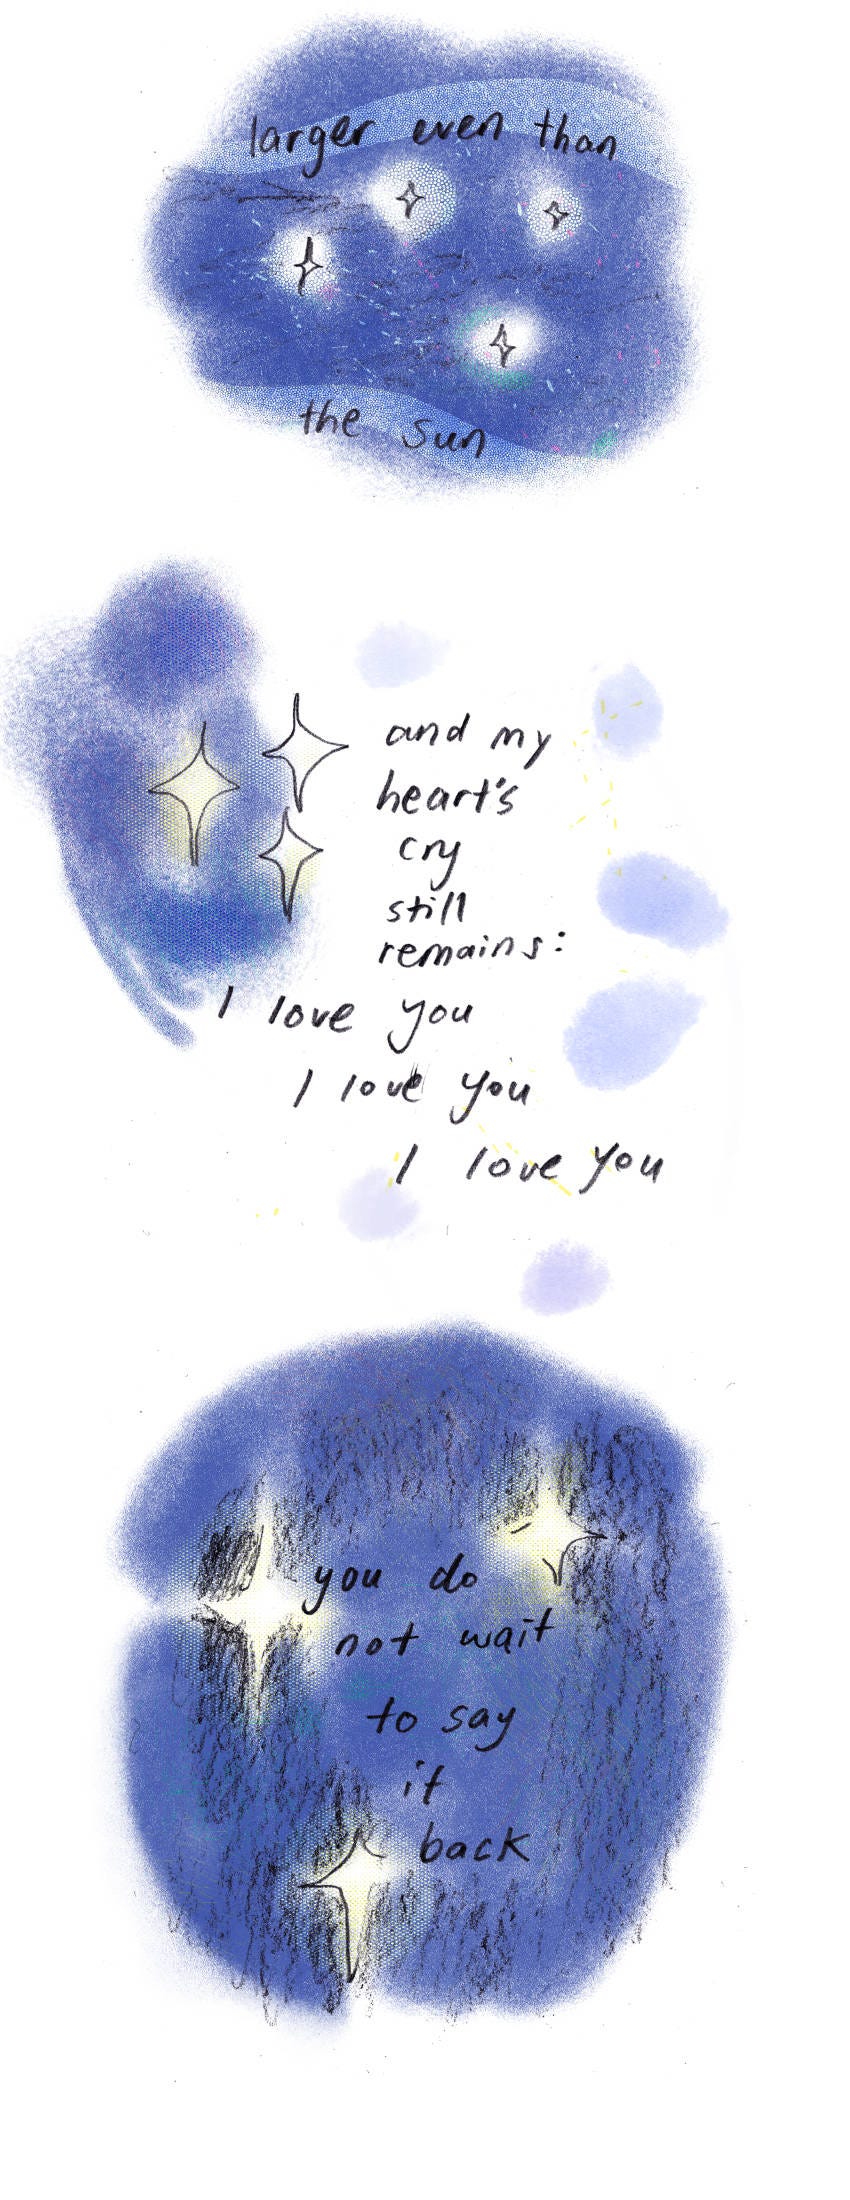 larger even than
the sun
and my
heart's
cry
still
remains:
I love you
I love you
I love you
you do
not wait
to say
it
back